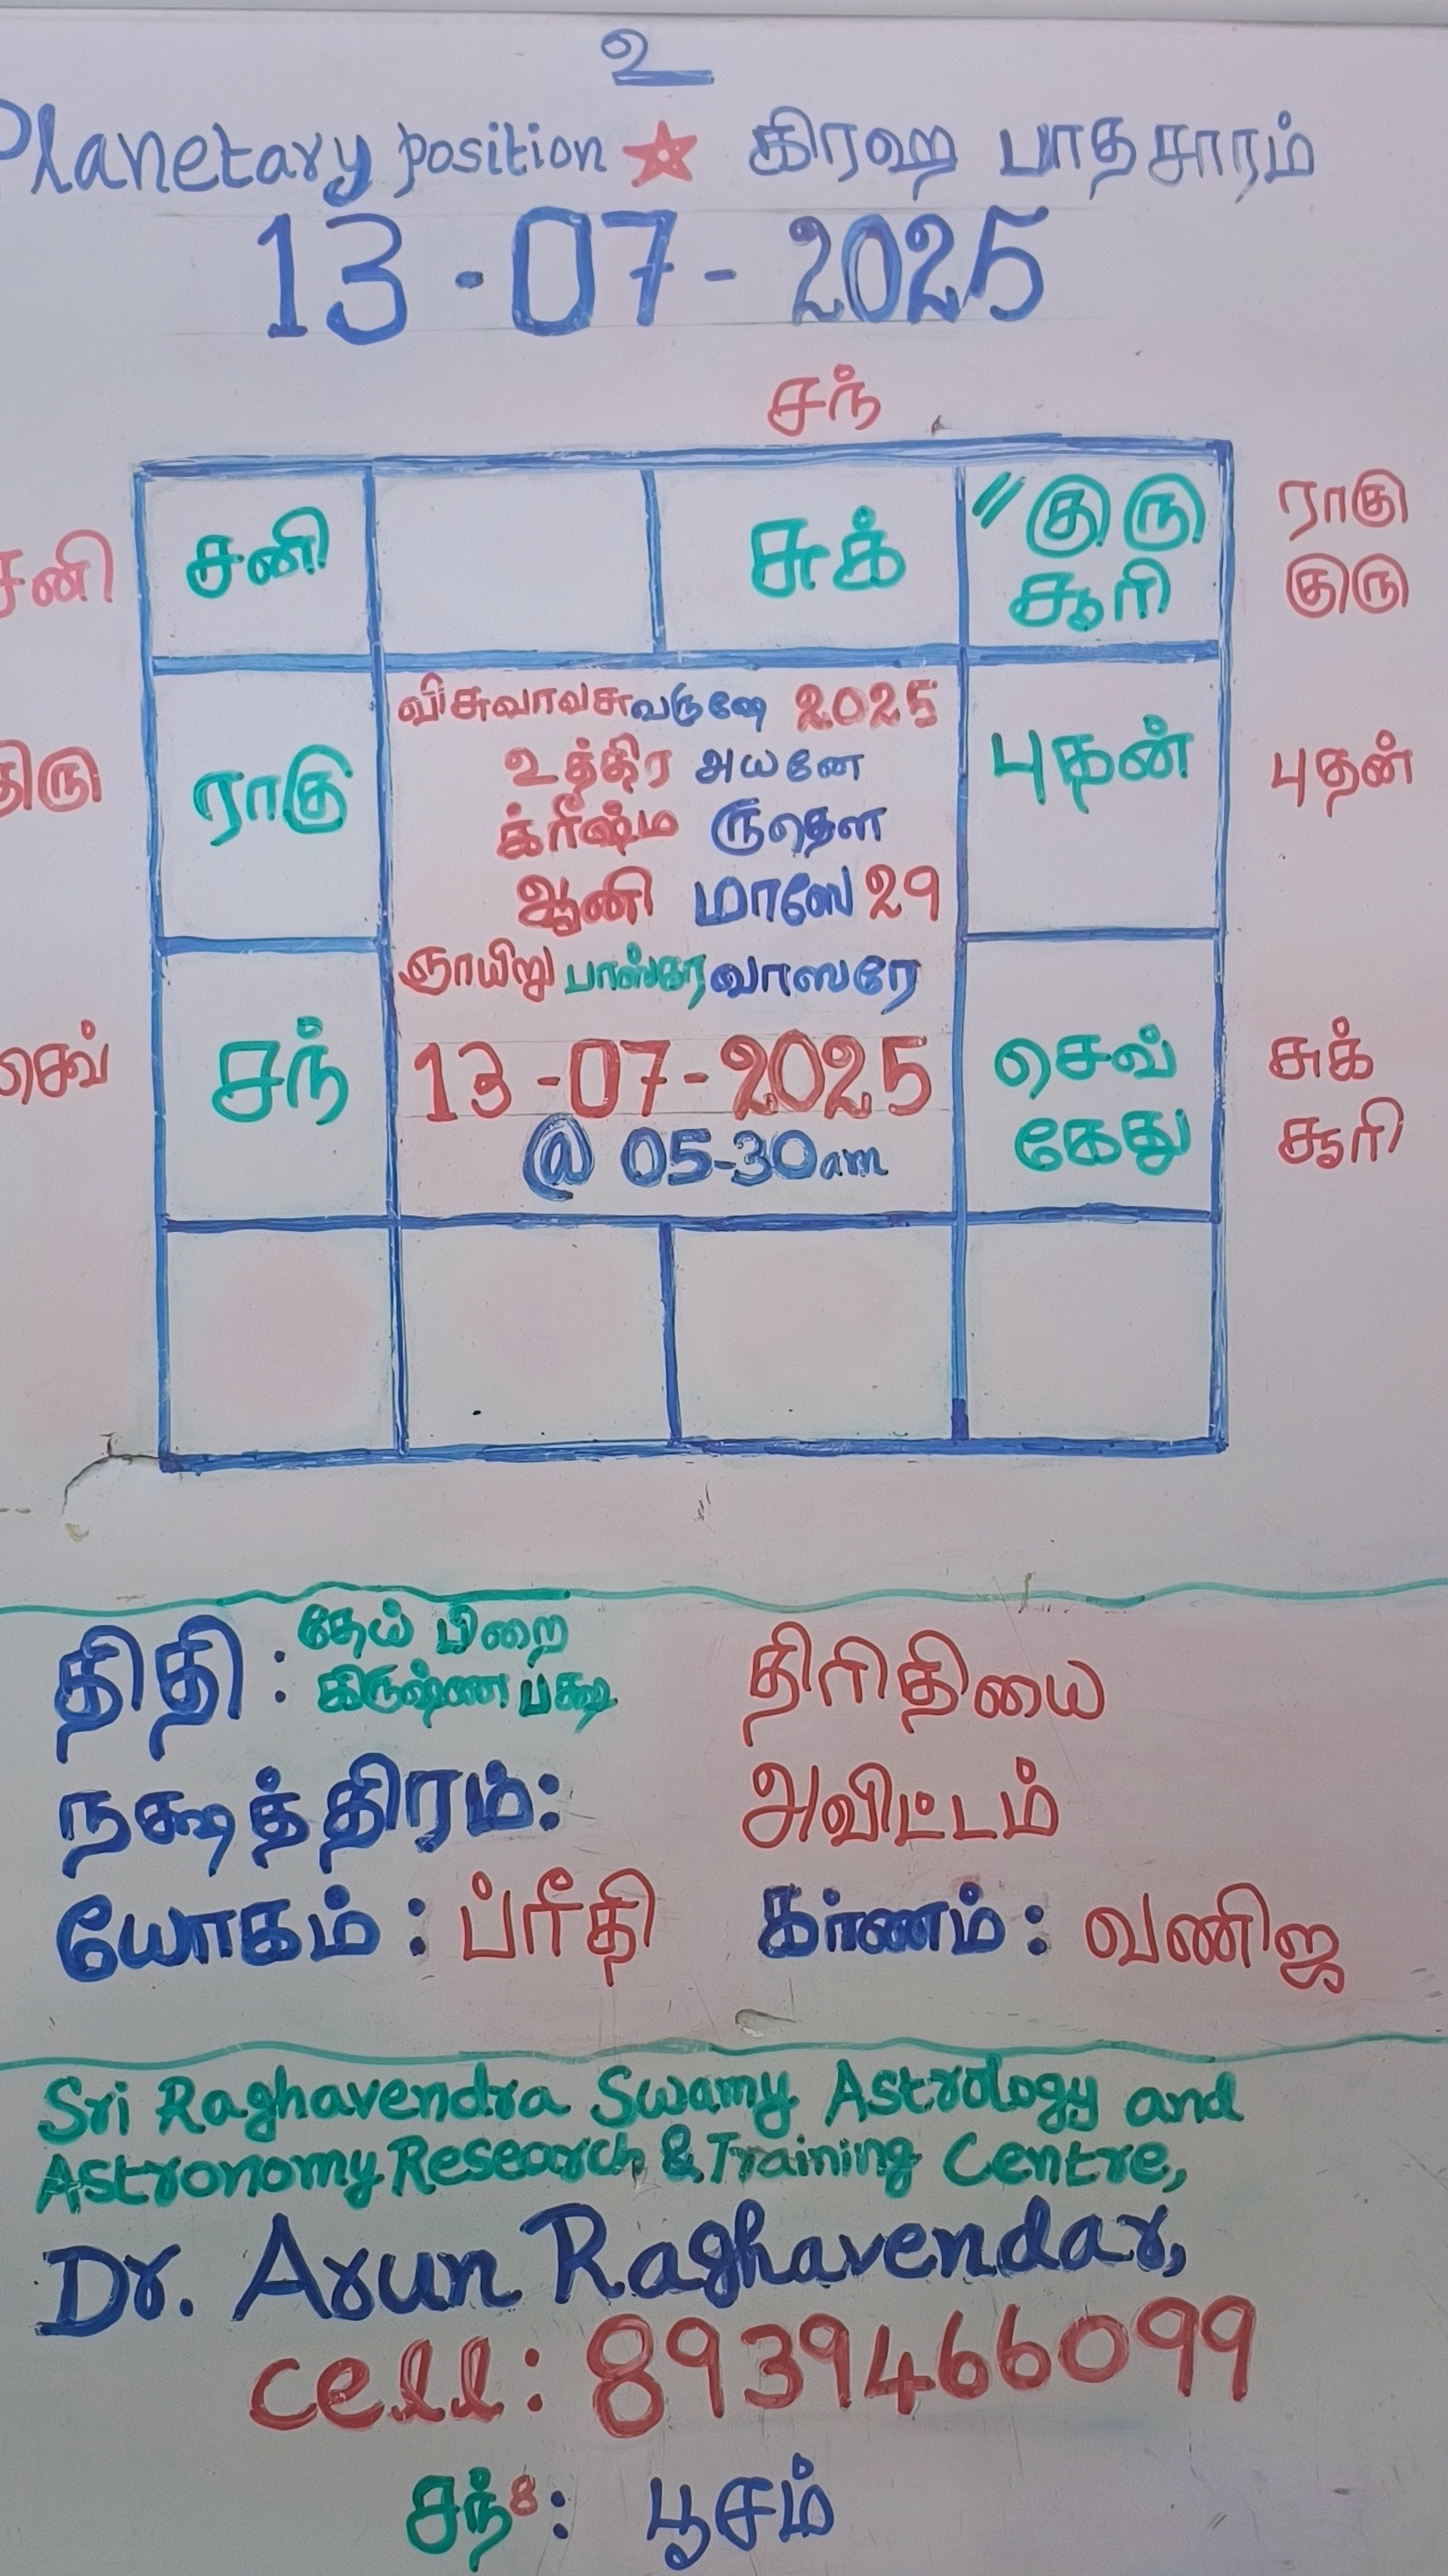 உ
Planetary position ☆ கிரஹ பாதசாரம்
13-07-2025
சந்
சனி சனி சுக் "குரு ராகு
சூரி குரு
விசுவாவசுவருஷே 2025
உத்திர அயனே
ராகு புதன் புதன்
க்ரீஷ்ம ருதௌ
ஆனி மாஸே 29
ஞாயிறு பாஸ்கர வாஸரே
செவ் சந் 13-07-2025 செவ் சுக்
@ 05-30am கேது சூரி
திதி: தேய் பிறை திரிதியை
கிருஷ்ண பக்ஷ
நக்ஷத்திரம்: அவிட்டம்
யோகம்: ப்ரீதி கர்ணம்: வணிஜ
Sri Raghavendra Swamy Astrology and
Astronomy Research & Training Centre,
Dr. Arun Raghavendar,
cell: 8939466099
சந்8: பூசம்